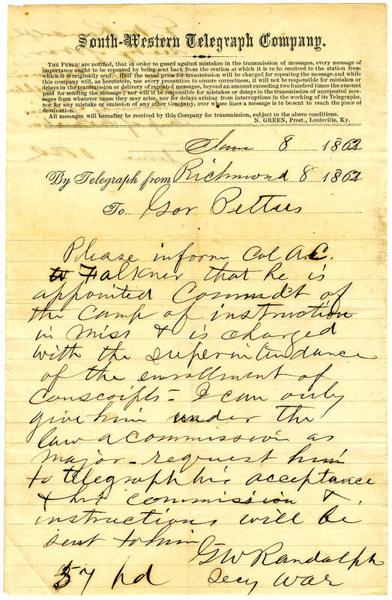 South-Western Telegraph Company.
THE PUBLIC are notified, that in order to guard against mistakes in the transmission of messages, every message of
importance ought to be repeated by being sent back from the station at which it is to be received to the station from
which it is originally sent. Half the usual price for transmission will be charged for repeating the message, and while
this company will, as heretofore, use every precaution to ensure correctness, it will not be responsible for mistakes or
delays in the transmission or delivery of repeated messages, beyond an amount exceeding two hundred times the amount
paid for sending the message; nor will it be responsible for mistakes or delays in the transmission of unrepeated mes-
sages from whatever cause they may arise, nor for delays arising from interruptions in the working of its Telegraphs,
nor for any mistake or omission of any other Company, over whose lines a message is to be sent to reach the place of
destination.
All messages will hereafter be received by this Company for transmission, subject to the above conditions.
N. GREEN, Prest., Louisville, Ky.
8 1862
By Telegraph from Richmond 8 1862
To Gov Pettus
Please inform Col A.C.
Falkner that he is
appointed Commdt of
the Camp of instruction
in Miss & is charged
with the superintendance
of the enrollment of
Conscripts - I can only
give him under the
law a commission as
Major - request him
to telegraph his acceptance
& his commission &
instructions will be
sent to him
G W Randolph
57 pd Secy War